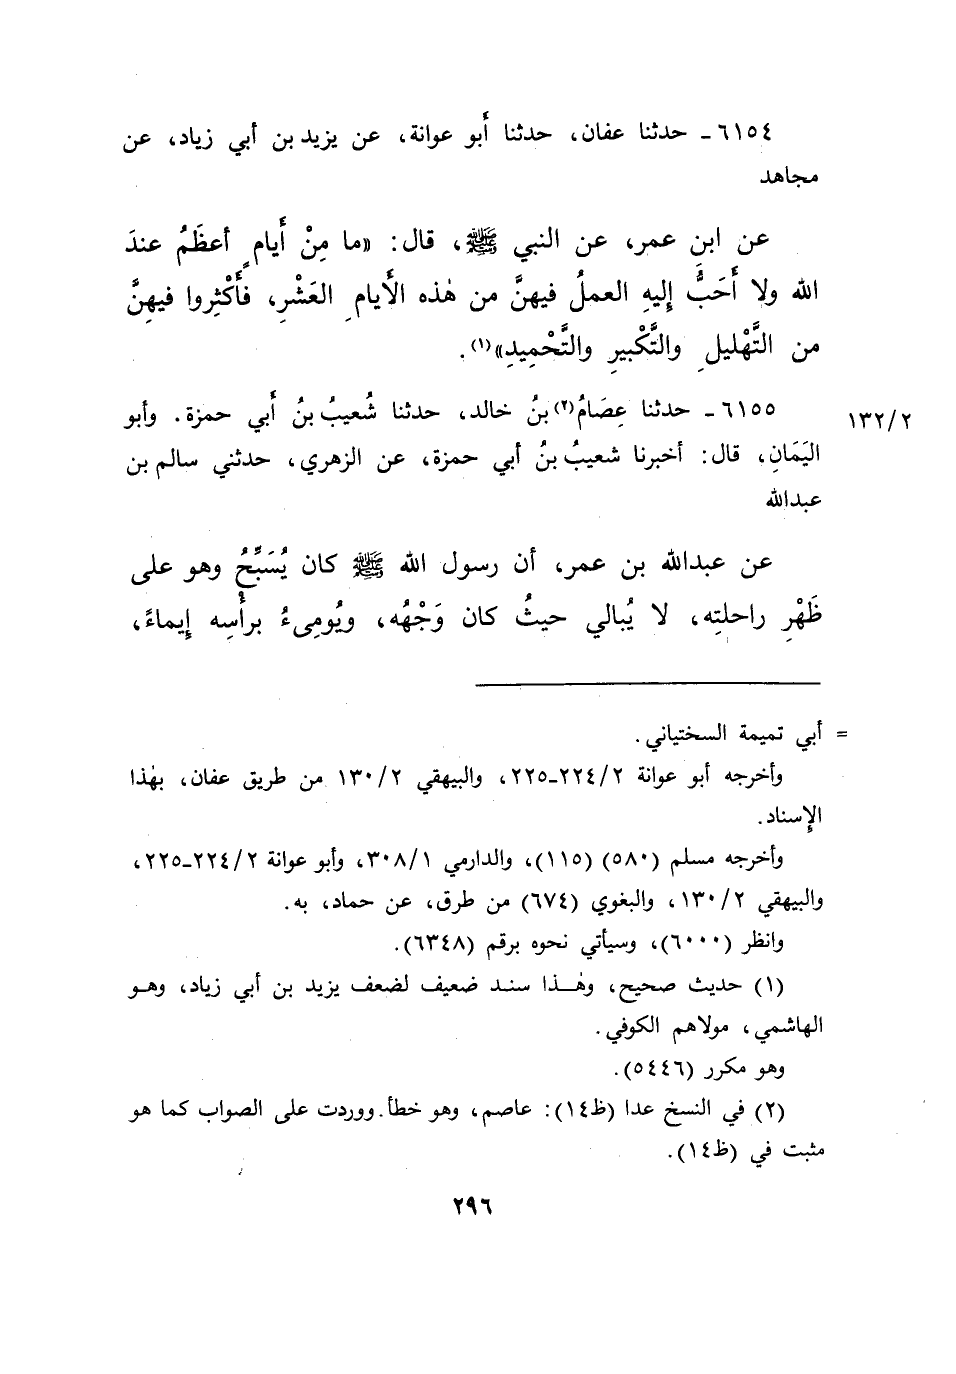 ٦١٥٤ـ حدثنا عفان، حدثنا أَبو عوانة، عن يزيد بن أبي زياد، عن
مجاهد
عن ابن عمر، عن النبي ﷺ، قال: «ما مِنْ أَيام ٍ أعظَمُ عندَ
الله ولا أَحَبُّ إليهِ العملُ فيهنَّ من هٰذه الأَيام ِ العَشْرِ، فأَكْثِروا فيهِنَّ
من التَّهْليل ِ والتَّكْبيرِ والتَّحْمِيدِ»(١).
٦١٥٥ـ حدثنا عِصَامُ(٢) بنُ خالد، حدثنا شُعيبُ بنُ أَبي حمزة. وأبو
١٣٢/٢
اليَمَانِ، قال: أخبرنا شعيبُ بنُ أبي حمزة، عن الزهري، حدثني سالم بن
عبدالله
عن عبدالله بن عمر، أن رسول الله ﷺ كان يُسَبِّحُ وهو على
ظَهْرِ راحلتِه، لا يُبالي حيثُ كان وَجْهُه، ويُومِىءُ برأْسِه إِيماءً،
= أبي تميمة السختياني.
وأخرجه أبو عوانة ٢٢٤/٢ـ٢٢٥، والبيهقي ١٣٠/٢ من طريق عفان، بهٰذا
الإسناد.
وأخرجه مسلم (٥٨٠) (١١٥)، والدارمي ٣٠٨/١، وأبو عوانة ٢٢٤/٢ـ٢٢٥،
والبيهقي ١٣٠/٢، والبغوي (٦٧٤) من طرق، عن حماد، به.
وانظر (٦٠٠٠)، وسيأتي نحوه برقم (٦٣٤٨).
(١) حديث صحيح، وهٰذا سند ضعيف لضعف يزيد بن أبي زياد، وهو
الهاشمي، مولاهم الكوفي.
وهو مكرر (٥٤٤٦).
(٢) في النسخ عدا (ظ١٤): عاصم، وهو خطأ. ووردت على الصواب كما هو
مثبت في (ظ١٤).
٢٩٦